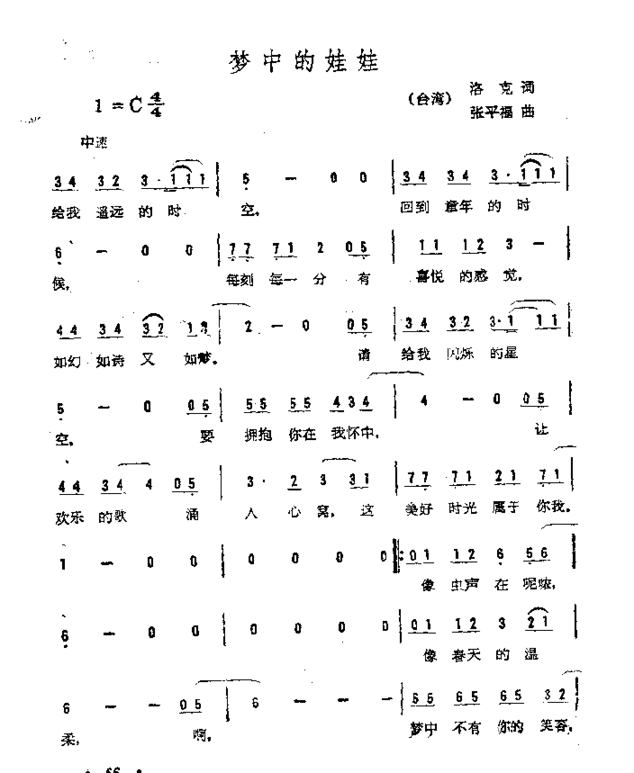 梦中的娃娃
1=C 4/4
（台湾）洛克 词
张平福 曲
中速
3 4 3 2 3 · 1 1 1 | 5 — 0 0 | 3 4 3 4 3 · 1 1 1 |
给我 遥远 的 时 空， 回到 童年 的 时
6 — 0 0 | 7 7 7 1 2 0 5 | 1 1 1 2 3 — |
候， 每刻 每一 分 有 喜悦 的感 觉，
4 4 3 4 3 2 1 2 | 2 — 0 0 5 | 3 4 3 2 3 · 1 1 1 |
如幻 如诗 又 如梦。 请 给我 闪烁 的星
5 — 0 0 5 | 5 5 5 5 4 3 4 | 4 — 0 0 5 |
空， 要 拥抱 你在 我怀中， 让
4 4 3 4 4 0 5 | 3 · 2 3 3 1 | 7 7 7 1 2 1 7 1 |
欢乐 的歌 涌 入 心 窝， 这 美好 时光 属于 你我，
1 — 0 0 | 0 0 0 0 |: 0 1 1 2 6 5 6 |
像 虫声 在 呢哝，
6 — 0 0 | 0 0 0 0 | 0 1 1 2 3 2 1 |
像 春天 的 温
6 — — 0 5 | 6 — — — | 6 5 6 5 6 5 3 2 |
柔， 啊， 梦中 不有 你的 笑容，
· 66 ·